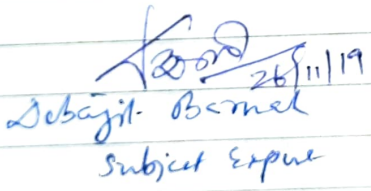 26/11/19
Debajit Barman
Subject Expert